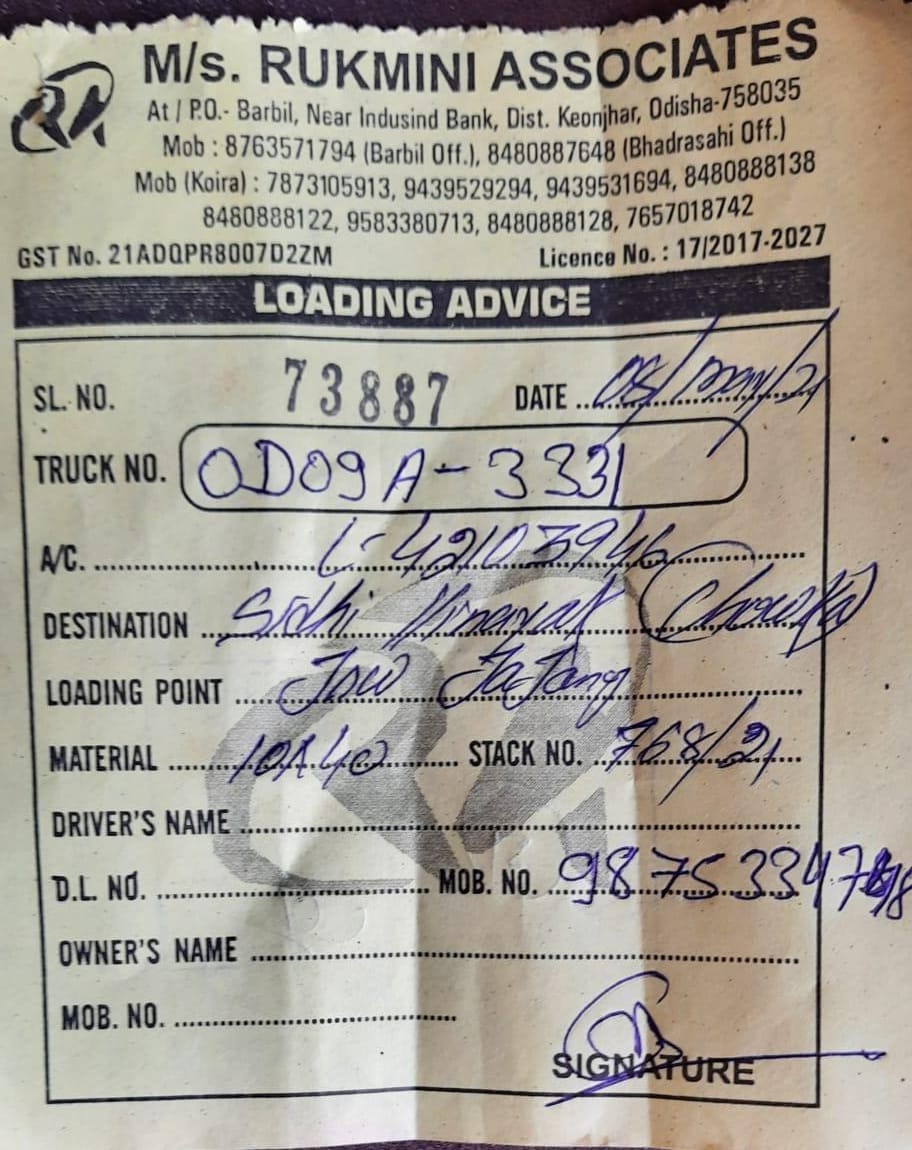 M/s. RUKMINI ASSOCIATES
At / P.O.- Barbil, Near Indusind Bank, Dist. Keonjhar, Odisha-758035
Mob : 8763571794 (Barbil Off.), 8480887648 (Bhadrasahi Off.)
Mob (Koira) : 7873105913, 9439529294, 9439531694, 8480888138
8480888122, 9583380713, 8480888128, 7657018742
GST No. 21ADQPR8007D2ZM Licence No. : 17/2017-2027
LOADING ADVICE
SL. NO. 73887 DATE 08/may/21
TRUCK NO. OD09A-3331
A/C. L-42103946
DESTINATION Sidhi Vinayak
LOADING POINT Jsw JaJang
MATERIAL 10X40 STACK NO. 768/21
DRIVER'S NAME
D.L. NO. MOB. NO.
OWNER'S NAME
MOB. NO.
SIGNATURE